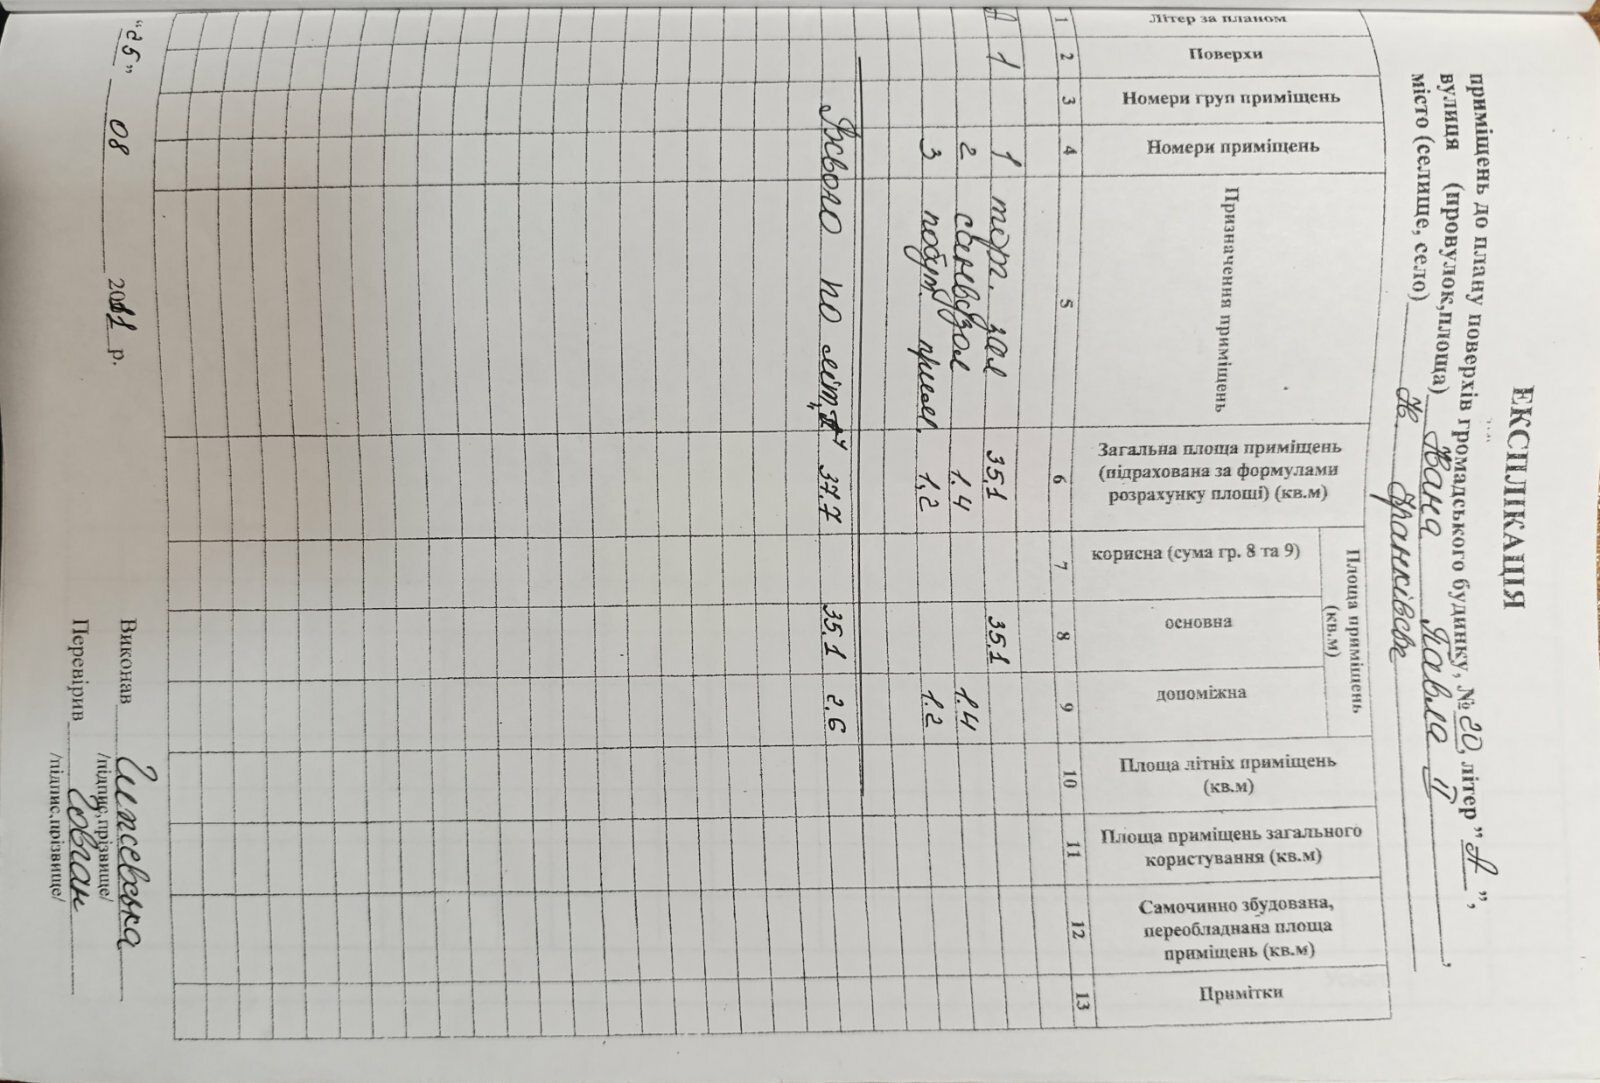 ЕКСПЛІКАЦІЯ
приміщень до плану поверхів громадського будинку, № 20, літер "А",
вулиця (провулок,площа) Івана Павла ІІ,
місто (селище, село) Ів. Франківськ
Літер за планом
Поверхи
Номери груп приміщень
Номери приміщень
Призначення приміщень
Загальна площа приміщень (підрахована за формулами розрахунку площі) (кв.м)
Площа приміщень (кв.м)
корисна (сума гр. 8 та 9)
основна
допоміжна
Площа літніх приміщень (кв.м)
Площа приміщень загального користування (кв.м)
Самочинно збудована, переобладнана площа приміщень (кв.м)
Примітки
1 2 3 4 5 6 7 8 9 10 11 12 13
А 1 1 торг. зал 35.1 35.1
2 санвузол 1.4 1.4
3 побут. прим. 1,2 1.2
Всього по літ. "А" 37.7 35.1 2.6
"25" 08 2011 р.
Виконав
/підпис,прізвище/
Перевірив Човган
/підпис,прізвище/